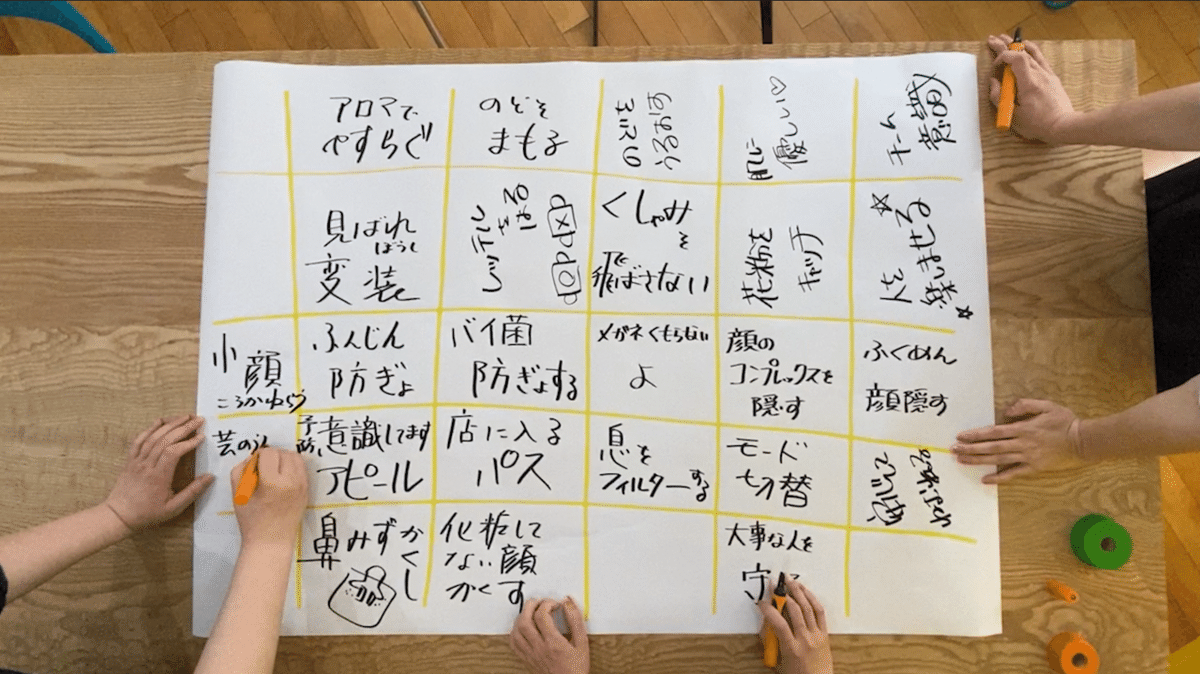 アロマで
やすらぐ
のどを
まもる
肌に
優しい♡
チーム
意識
見ばれ
ぼうし
変装
くしゃみ
を
飛ばさない
花粉を
キャッチ
人を
小顔
ふんじん
防ぎょ
バイ菌
防ぎょする
メガネくもらない
よ
顔の
コンプレックスを
隠す
ふくめん
顔隠す
芸のう
予防意識してます
アピール
店に入る
パス
息を
フィルターする
モード
切替
鼻みずかくし
化粧して
ない顔
かくす
大事な人を
守